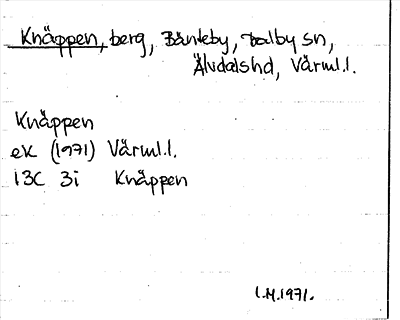 Knäppen, berg, Bänteby, Dalby sn,
Älvdalshd, Värml.l.
Knäppen
ek (1971) Värml.l.
13C 3i Knäppen
I.M.1971.